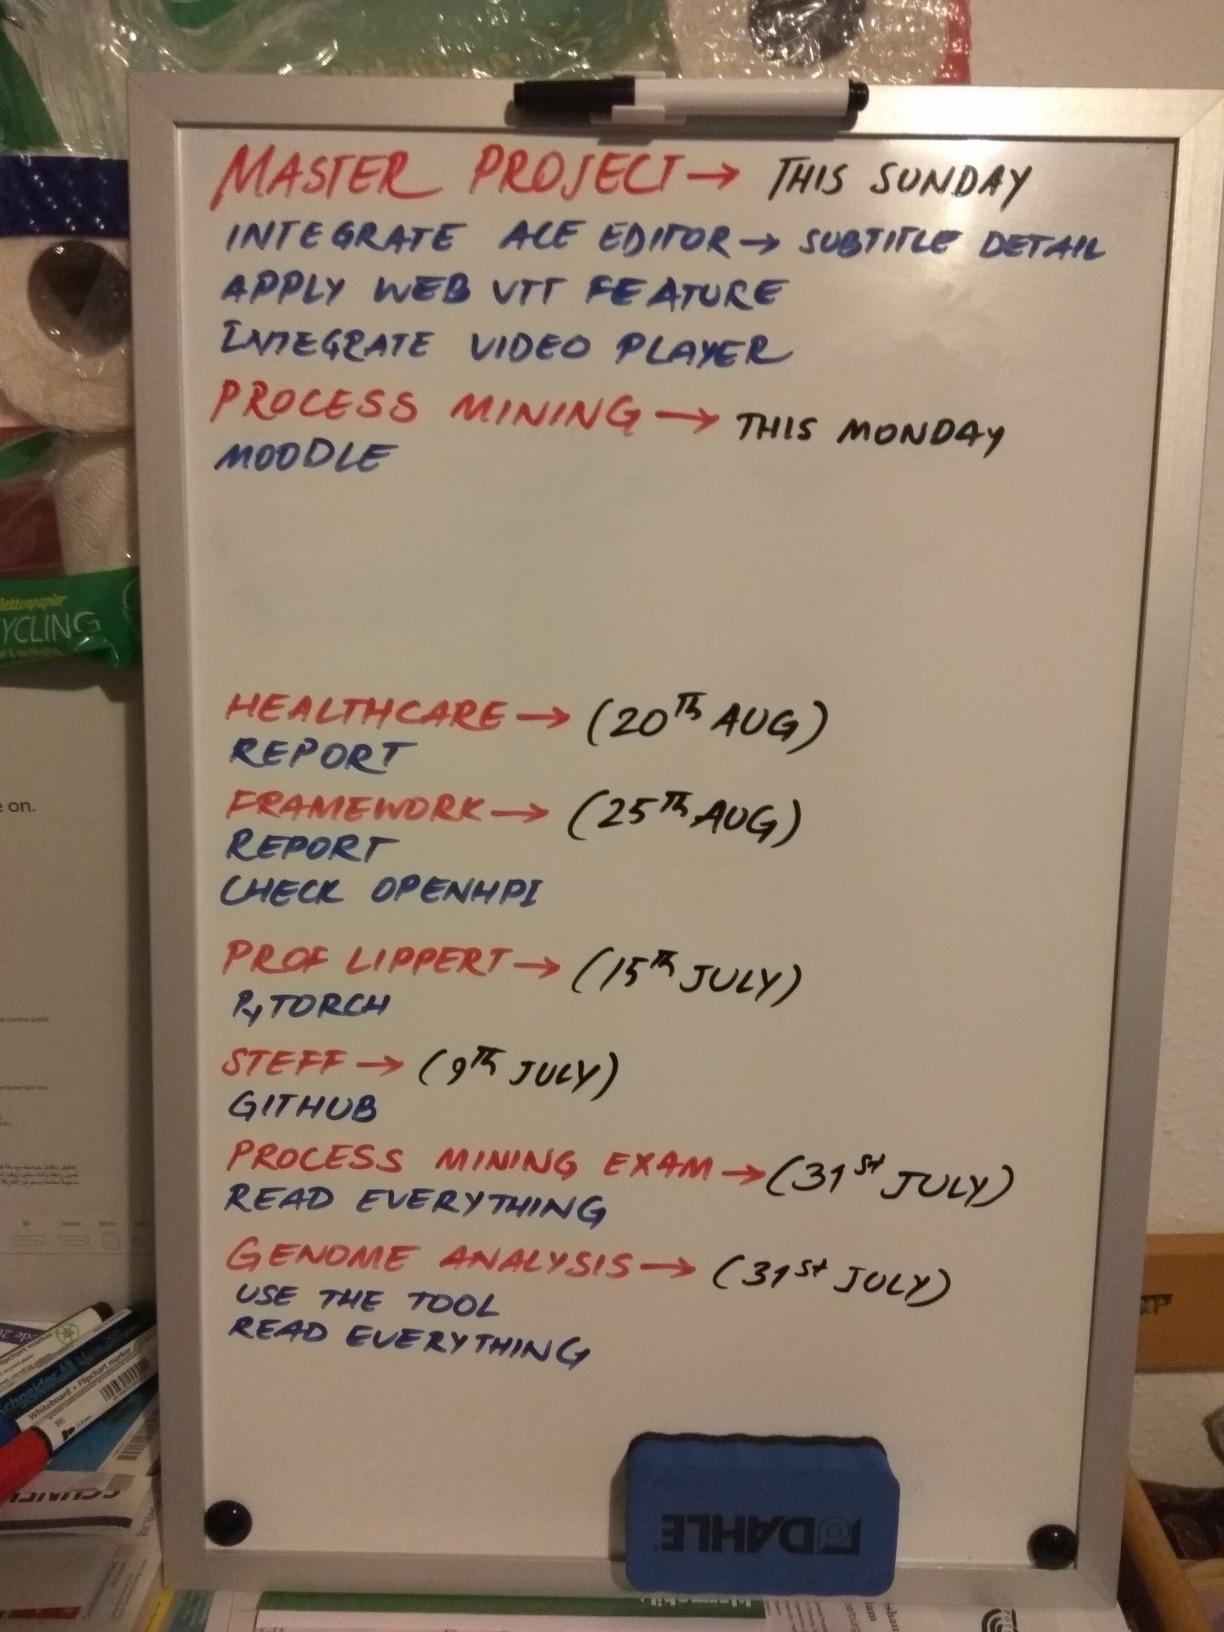 MASTER PROJECT → THIS SUNDAY
INTEGRATE ACE EDITOR → SUBTITLE DETAIL
APPLY WEB VTT FEATURE
INTEGRATE VIDEO PLAYER
PROCESS MINING → THIS MONDAY
MOODLE
HEALTHCARE → (20TH AUG)
REPORT
FRAMEWORK → (25TH AUG)
REPORT
CHECK OPENHPI
PROF LIPPERT → (15TH JULY)
PyTORCH
STEFF → (9TH JULY)
GITHUB
PROCESS MINING EXAM → (31st JULY)
READ EVERYTHING
GENOME ANALYSIS → (31st JULY)
USE THE TOOL
READ EVERYTHING
DAHLE
YCLING
e on.
Schneider
Whiteboard + Flipchart marker